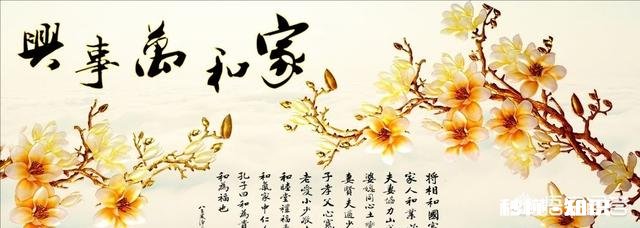 家和萬事興
將相和國家
家人和業
夫妻協力山
婆媳同心土
妻賢夫禍少
子孝父心寬
老愛小少敬
和睦堂福壽
和氣家中仁
孔子曰和為貴
和為福也